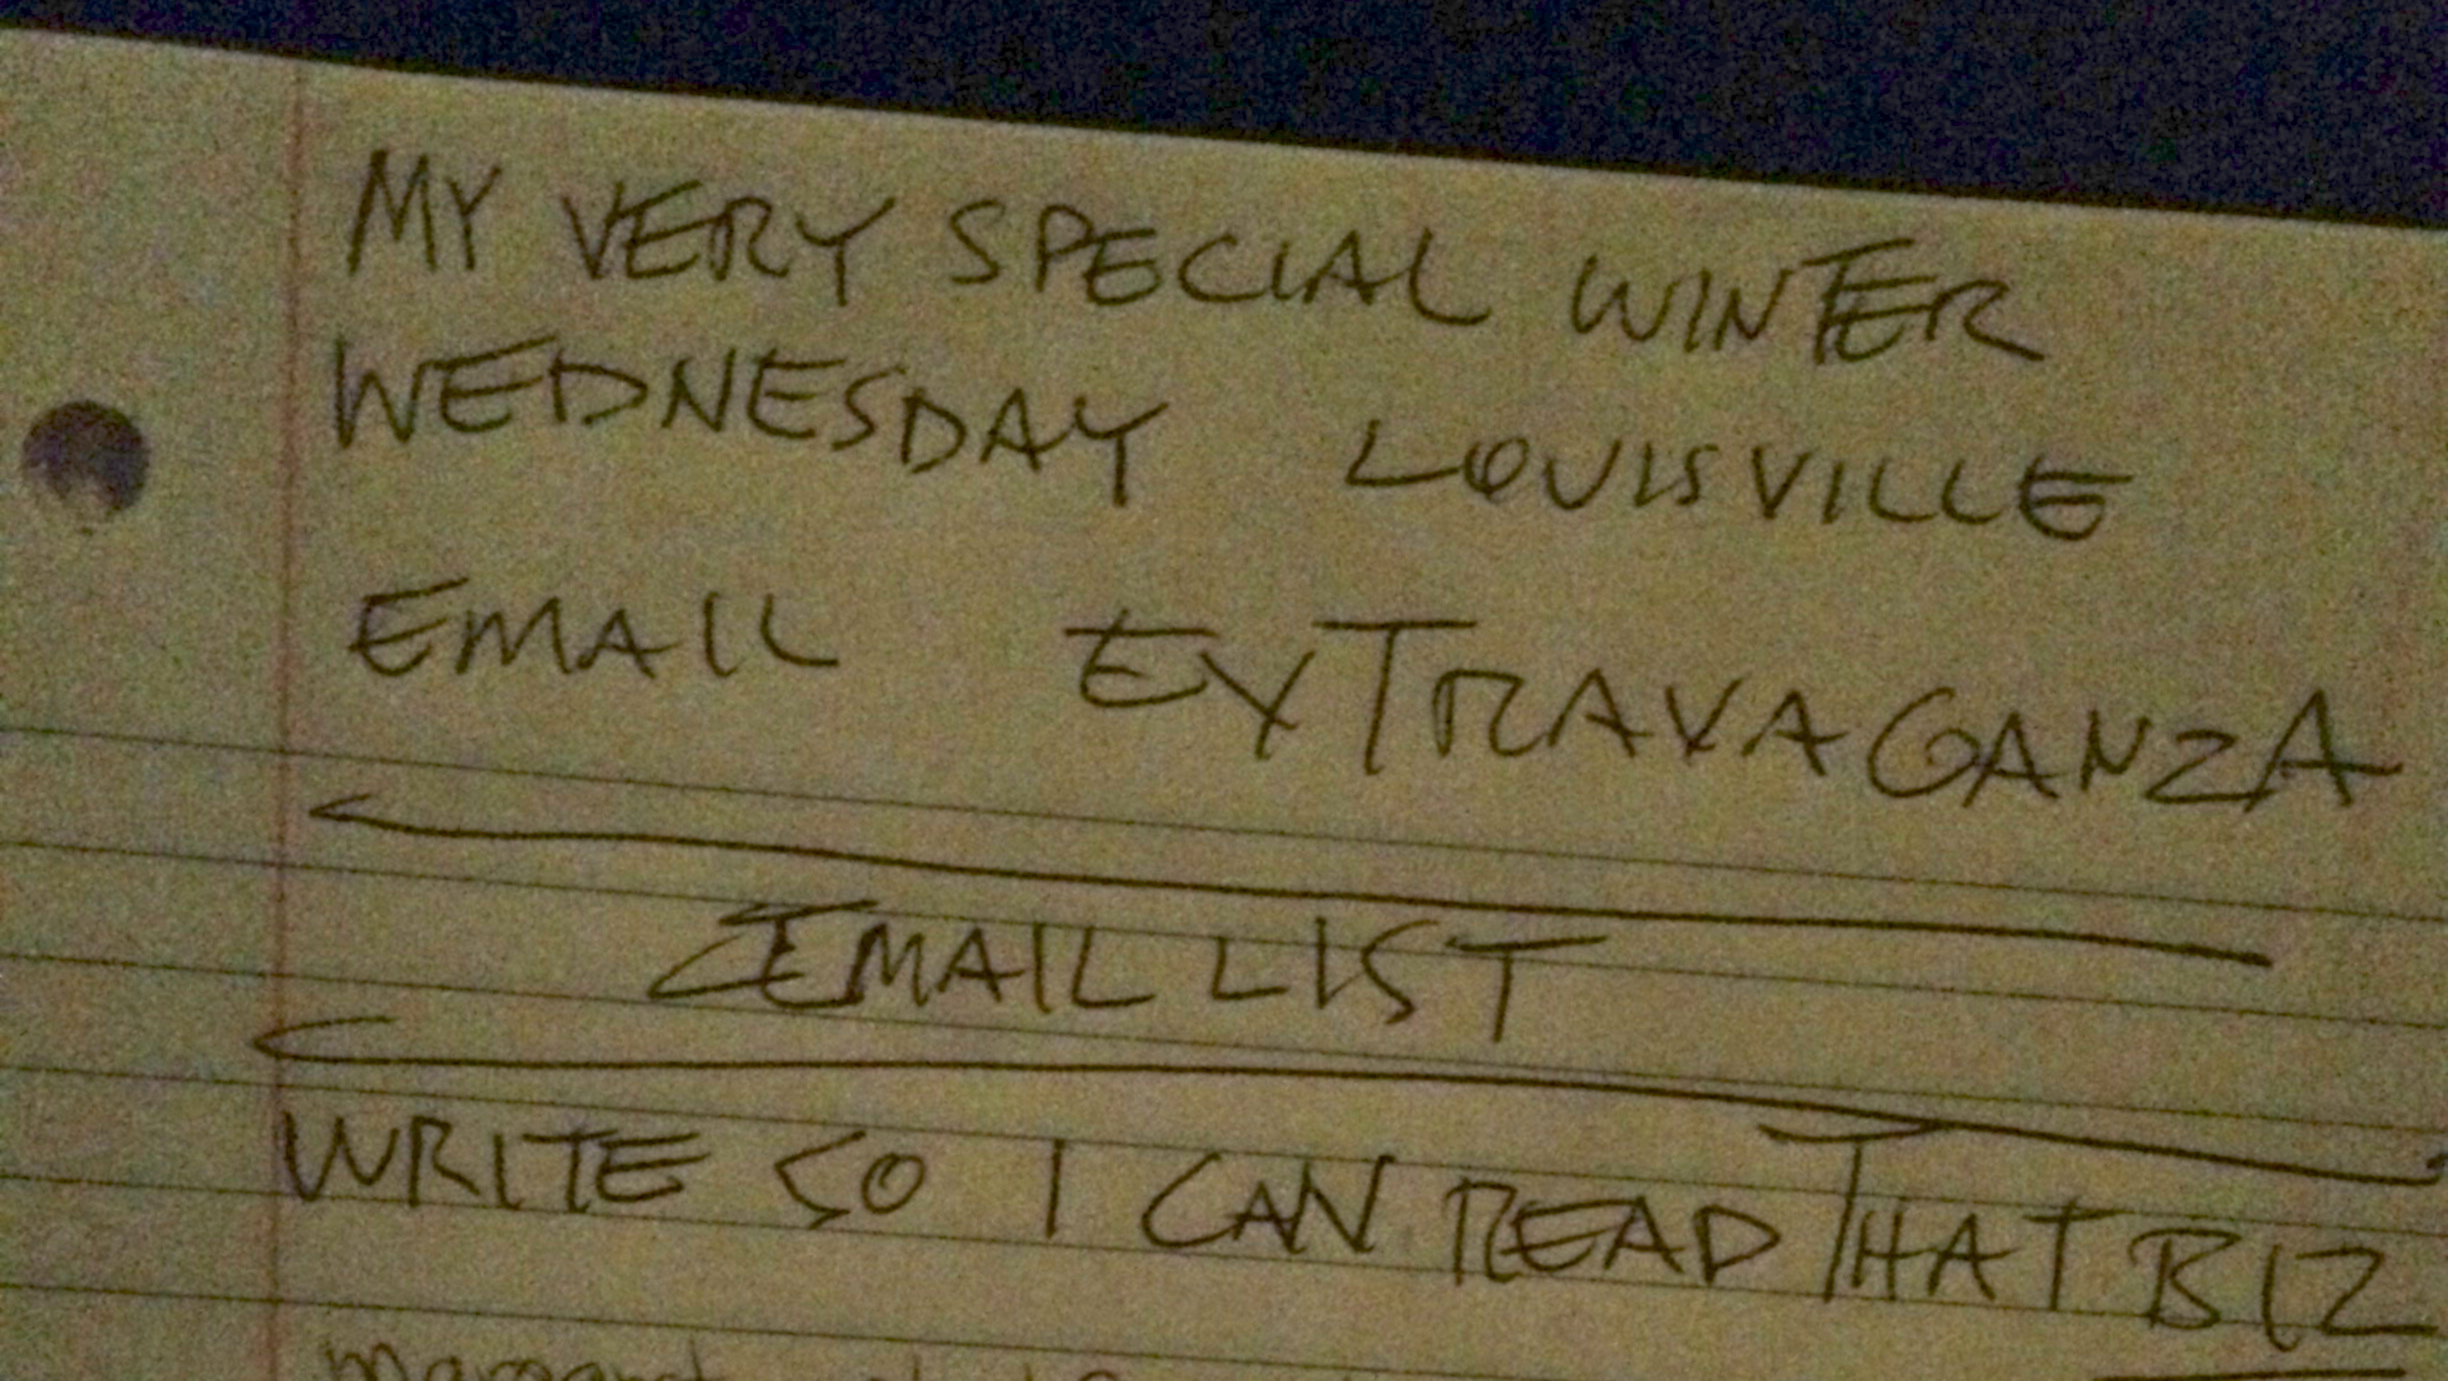 MY VERY SPECIAL WINTER
WEDNESDAY LOUISVILLE
EMAIL EXTRAVAGANZA
EMAIL LIST
WRITE SO I CAN READ THAT BIZ